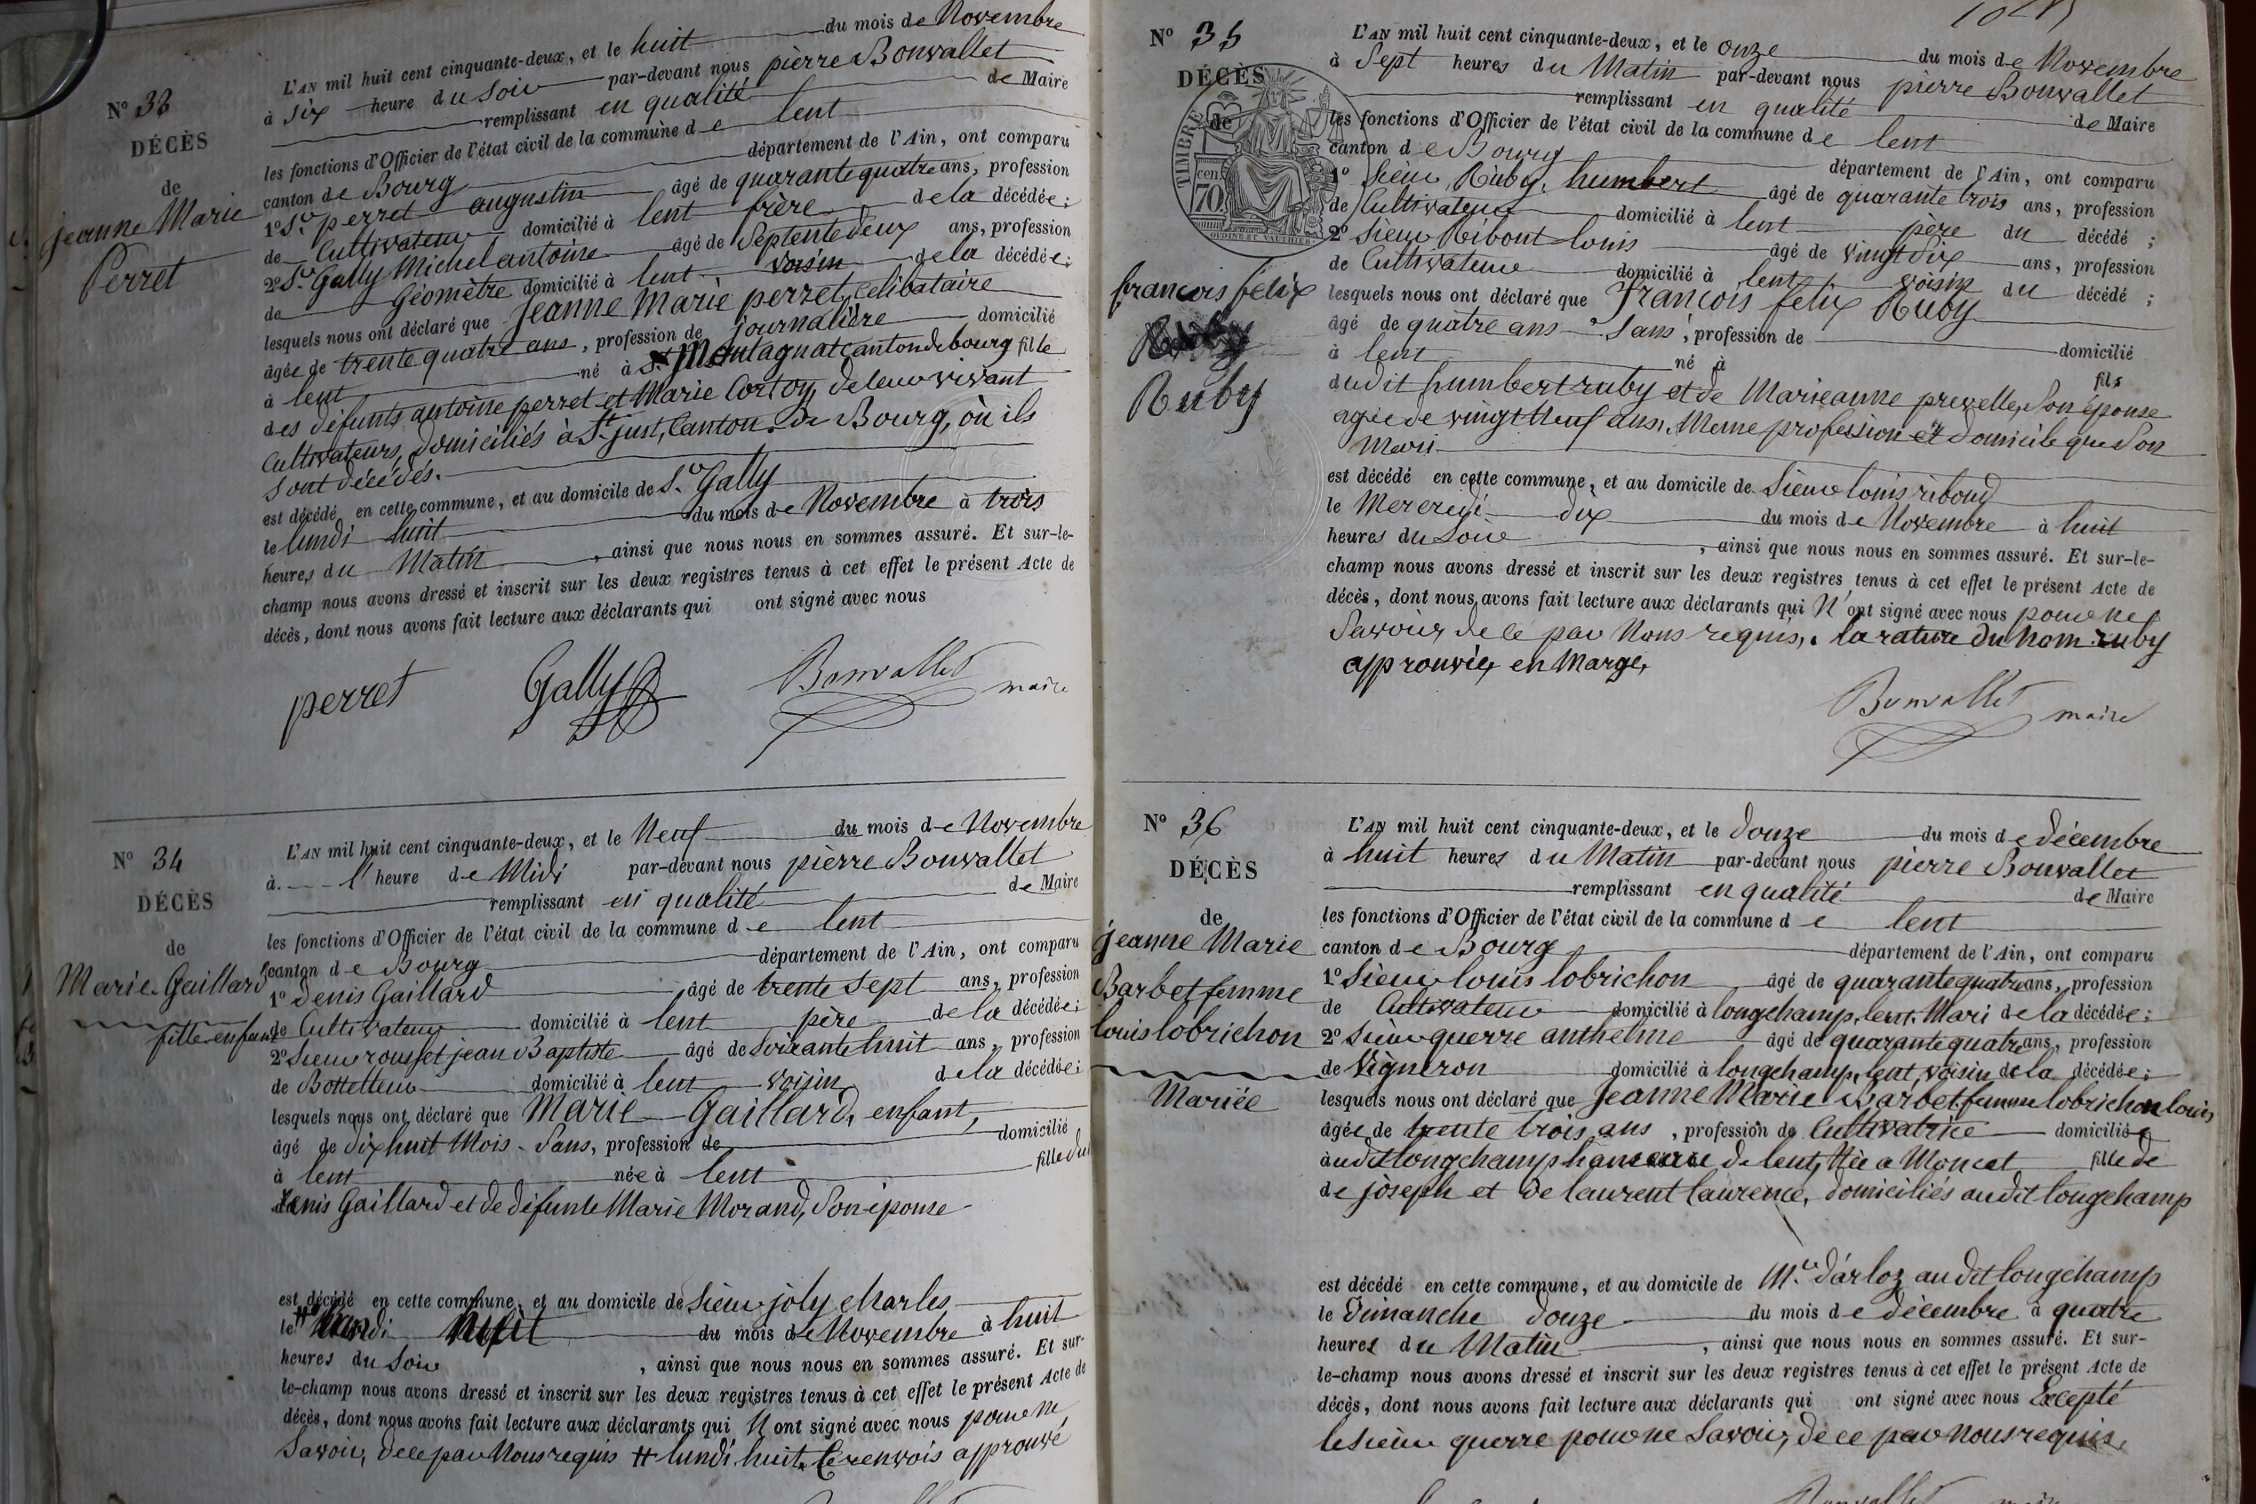 N° 33
DÉCÈS
de
jeanne Marie
Perret
L'AN mil huit cent cinquante-deux, et le huit du mois de Novembre
à six heure du soir par-devant nous pierre Bonvallet
remplissant en qualité de Maire
les fonctions d'Officier de l'état civil de la commune de lent
canton de Bourg département de l'Ain, ont comparu
1° Sr perret augustin âgé de quarante quatre ans, profession
de Cultivateur domicilié à lent frère de la décédée;
2° Sr Gally Michel antoine âgé de Septente deux ans, profession
de Géomètre domicilié à lent voisin de la décédée;
lesquels nous ont déclaré que Jeanne Marie perret, Célibataire
âgée de trente quatre ans, profession de journalière domicilié
à lent né à Montagnat canton de bourg fille
des défunts antoine perret et Marie Cortoy, de leur vivant
Cultivateurs, domiciliés à St just, Canton de Bourg, où ils
sont décédés.
est décédé en cette commune, et au domicile de Sr Gally
le lundi huit du mois de Novembre à trois
heures du Matin, ainsi que nous nous en sommes assuré. Et sur-le-
champ nous avons dressé et inscrit sur les deux registres tenus à cet effet le présent Acte de
décès, dont nous avons fait lecture aux déclarants qui ont signé avec nous
perret Gally Bonvallet maire
N° 34
DÉCÈS
de
Marie Gaillard
fille enfant
L'AN mil huit cent cinquante-deux, et le Neuf du mois de Novembre
à l'heure de Midi par-devant nous pierre Bonvallet
remplissant en qualité de Maire
les fonctions d'Officier de l'état civil de la commune de lent
canton de Bourg département de l'Ain, ont comparu
1° Denis Gaillard âgé de trente sept ans, profession
de Cultivateur domicilié à lent père de la décédée;
2° Sieur rousset jean Baptiste âgé de soixante huit ans, profession
de Bottelleur domicilié à lent voisin de la décédée;
lesquels nous ont déclaré que Marie Gaillard, enfant,
âgé de dix huit Mois - Sans, profession de domicilié
à lent née à lent fille du
denis Gaillard et de défunte Marie Morand, Son épouse
est décédé en cette commune, et au domicile de Sieur joly charles
le du mois de Novembre à huit
heures du Soir, ainsi que nous nous en sommes assuré. Et sur-
le-champ nous avons dressé et inscrit sur les deux registres tenus à cet effet le présent Acte de
décès, dont nous avons fait lecture aux déclarants qui N'ont signé avec nous pour ne
Savoir, de ce par Nous requis # lundi huit. Ce renvois approuvé
N° 35
DÉCÈS
de
TIMBRE
70 cen
OUDINE ET VAUTHIER
francois felix
Ruby
L'AN mil huit cent cinquante-deux, et le onze du mois de Novembre
à Sept heures du Matin par-devant nous pierre Bonvallet
remplissant en qualité de Maire
les fonctions d'Officier de l'état civil de la commune de lent
canton de Bourg département de l'Ain, ont comparu
1° Sieur Ruby, humbert âgé de quarante trois ans, profession
de Cultivateur domicilié à lent père du décédé;
2° Sieur Ribout louis âgé de vingt dix ans, profession
de Cultivateur domicilié à lent voisin du décédé;
lesquels nous ont déclaré que francois felix Ruby
âgé de quatre ans Sans, profession de domicilié
à lent né à fils
dudit humbert ruby et de Marieanne prevelle, Son épouse
agée de vingt Neuf ans, Meme profession et domicile que Son
Mari
est décédé en cette commune, et au domicile de Sieur louis riboud
le Mercredi dix du mois de Novembre à huit
heures du Soir, ainsi que nous nous en sommes assuré. Et sur-le-
champ nous avons dressé et inscrit sur les deux registres tenus à cet effet le présent Acte de
décès, dont nous avons fait lecture aux déclarants qui N'ont signé avec nous pour ne
Savoir, de ce par Nous requis, la rature du Nom ruby
approuvée, en Marge,
Bonvallet maire
N° 36
DÉCÈS
de
jeanne Marie
Barbet femme
louis lobrichon
Mariée
L'AN mil huit cent cinquante-deux, et le douze du mois de décembre
à huit heures du Matin par-devant nous pierre Bonvallet
remplissant en qualité de Maire
les fonctions d'Officier de l'état civil de la commune de lent
canton de Bourg département de l'Ain, ont comparu
1° Sieur louis lobrichon âgé de quarante quatre ans, profession
de Cultivateur domicilié à longchamp, lent, Mari de la décédée;
2° Sieur querre anthelme âgé de quarante quatre ans, profession
de Vigneron domicilié à longchamp, lent, voisin de la décédée;
lesquels nous ont déclaré que Jeanne Marie Barbet femme lobrichon louis
âgée de trente trois ans, profession de Cultivatrice domiciliée
audit longchamp hameau de lent, Née a Moncet fille de
de joseph et de laurent laurence, domiciliés audit longchamp
est décédé en cette commune, et au domicile de Mr d'arloz audit longchamp
le Dimanche douze du mois de décembre à quatre
heures du Matin, ainsi que nous nous en sommes assuré. Et sur-
le-champ nous avons dressé et inscrit sur les deux registres tenus à cet effet le présent Acte de
décès, dont nous avons fait lecture aux déclarants qui ont signé avec nous Excepté
le Sieur querre pour ne Savoir, de ce par Nous requis,